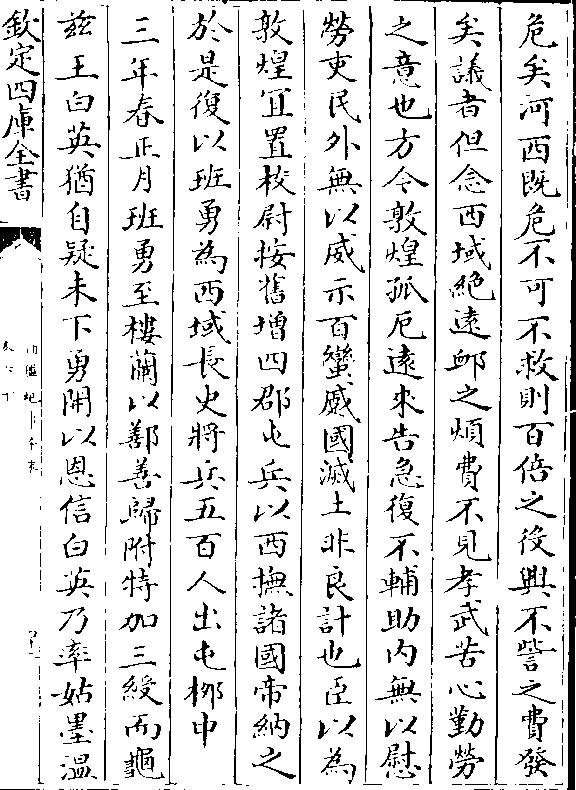 危矣河西既危不可不救則百倍之役興不訾之費發
矣議者但念西域絶遠䘏之煩費不見孝武苦心勤勞
之意也方今敦煌孤危遠來告急復不輔助内無以慰
勞吏民外無以威示百蠻蹙國滅土非良計也臣以為
敦煌宜置校尉按舊增四郡屯兵以西撫諸國帝納之
於是復以班勇為西域長史將兵五百人出屯柳中
三年春正月班勇至樓蘭以鄯善歸附特加三綬而龜
兹王白英猶自疑未下勇開以恩信白英乃率姑墨溫
欽定四庫全書